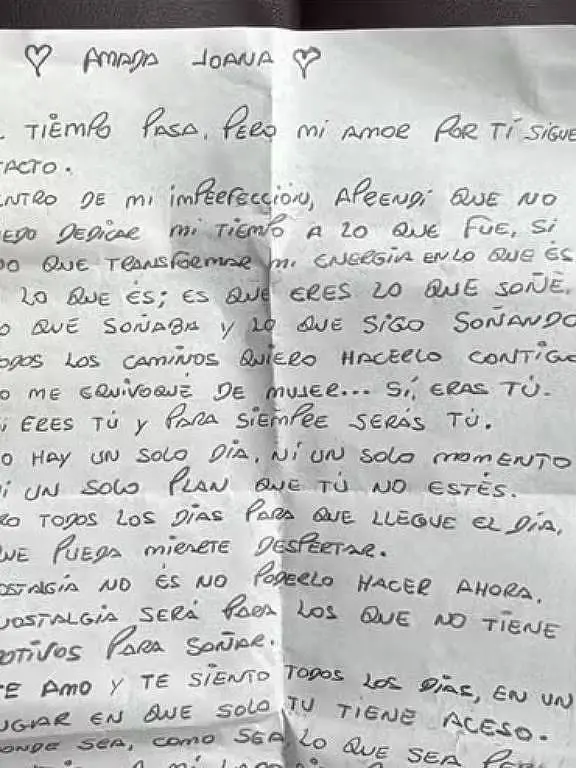 ♡ AMADA JOANA ♡
L TIEMPO PASA, PERO MI AMOR POR TÍ SIGUE
TACTO.
ENTRO DE MI IMPERFECCIÓN, APRENDÍ QUE NO
EDO DEDICAR MI TIEMPO A LO QUE FUE, SÍ
GO QUE TRANSFORMAR MI ENERGÍA EN LO QUE ÉS
LO QUE ÉS; ES QUE ERES LO QUE SOÑÉ,
O QUE SOÑABA Y LO QUE SIGO SOÑANDO
ODOS LOS CAMIÑOS QUIERO HACERLO CONTIGO
O ME EQUIVOQUÉ DE MUJER... SÍ, ERAS TÚ.
Í ERES TÚ Y PARA SIEMPRE SERÁS TÚ.
O HAY UN SOLO DÍA, NÍ UN SOLO MOMENTO
Í UN SOLO PLAN QUE TÚ NO ESTÉS.
RO TODOS LOS DÍAS PARA QUE LLEGUE EL DÍA,
UE PUEDA MIERETE DESPERTAR.
OSTALGÍA NO ÉS NO PODERLO HACER AHORA,
NOSTALGÍA SERÁ PARA LOS QUE NO TIENE
OTIVOS PARA SOÑAR.
TE AMO Y TE SIENTO TODOS LOS DÍAS, EN UN
UGAR EN QUE SOLO TU TIENE ACESO.
ONDE SEA, COMO SEA, LO QUE SEA